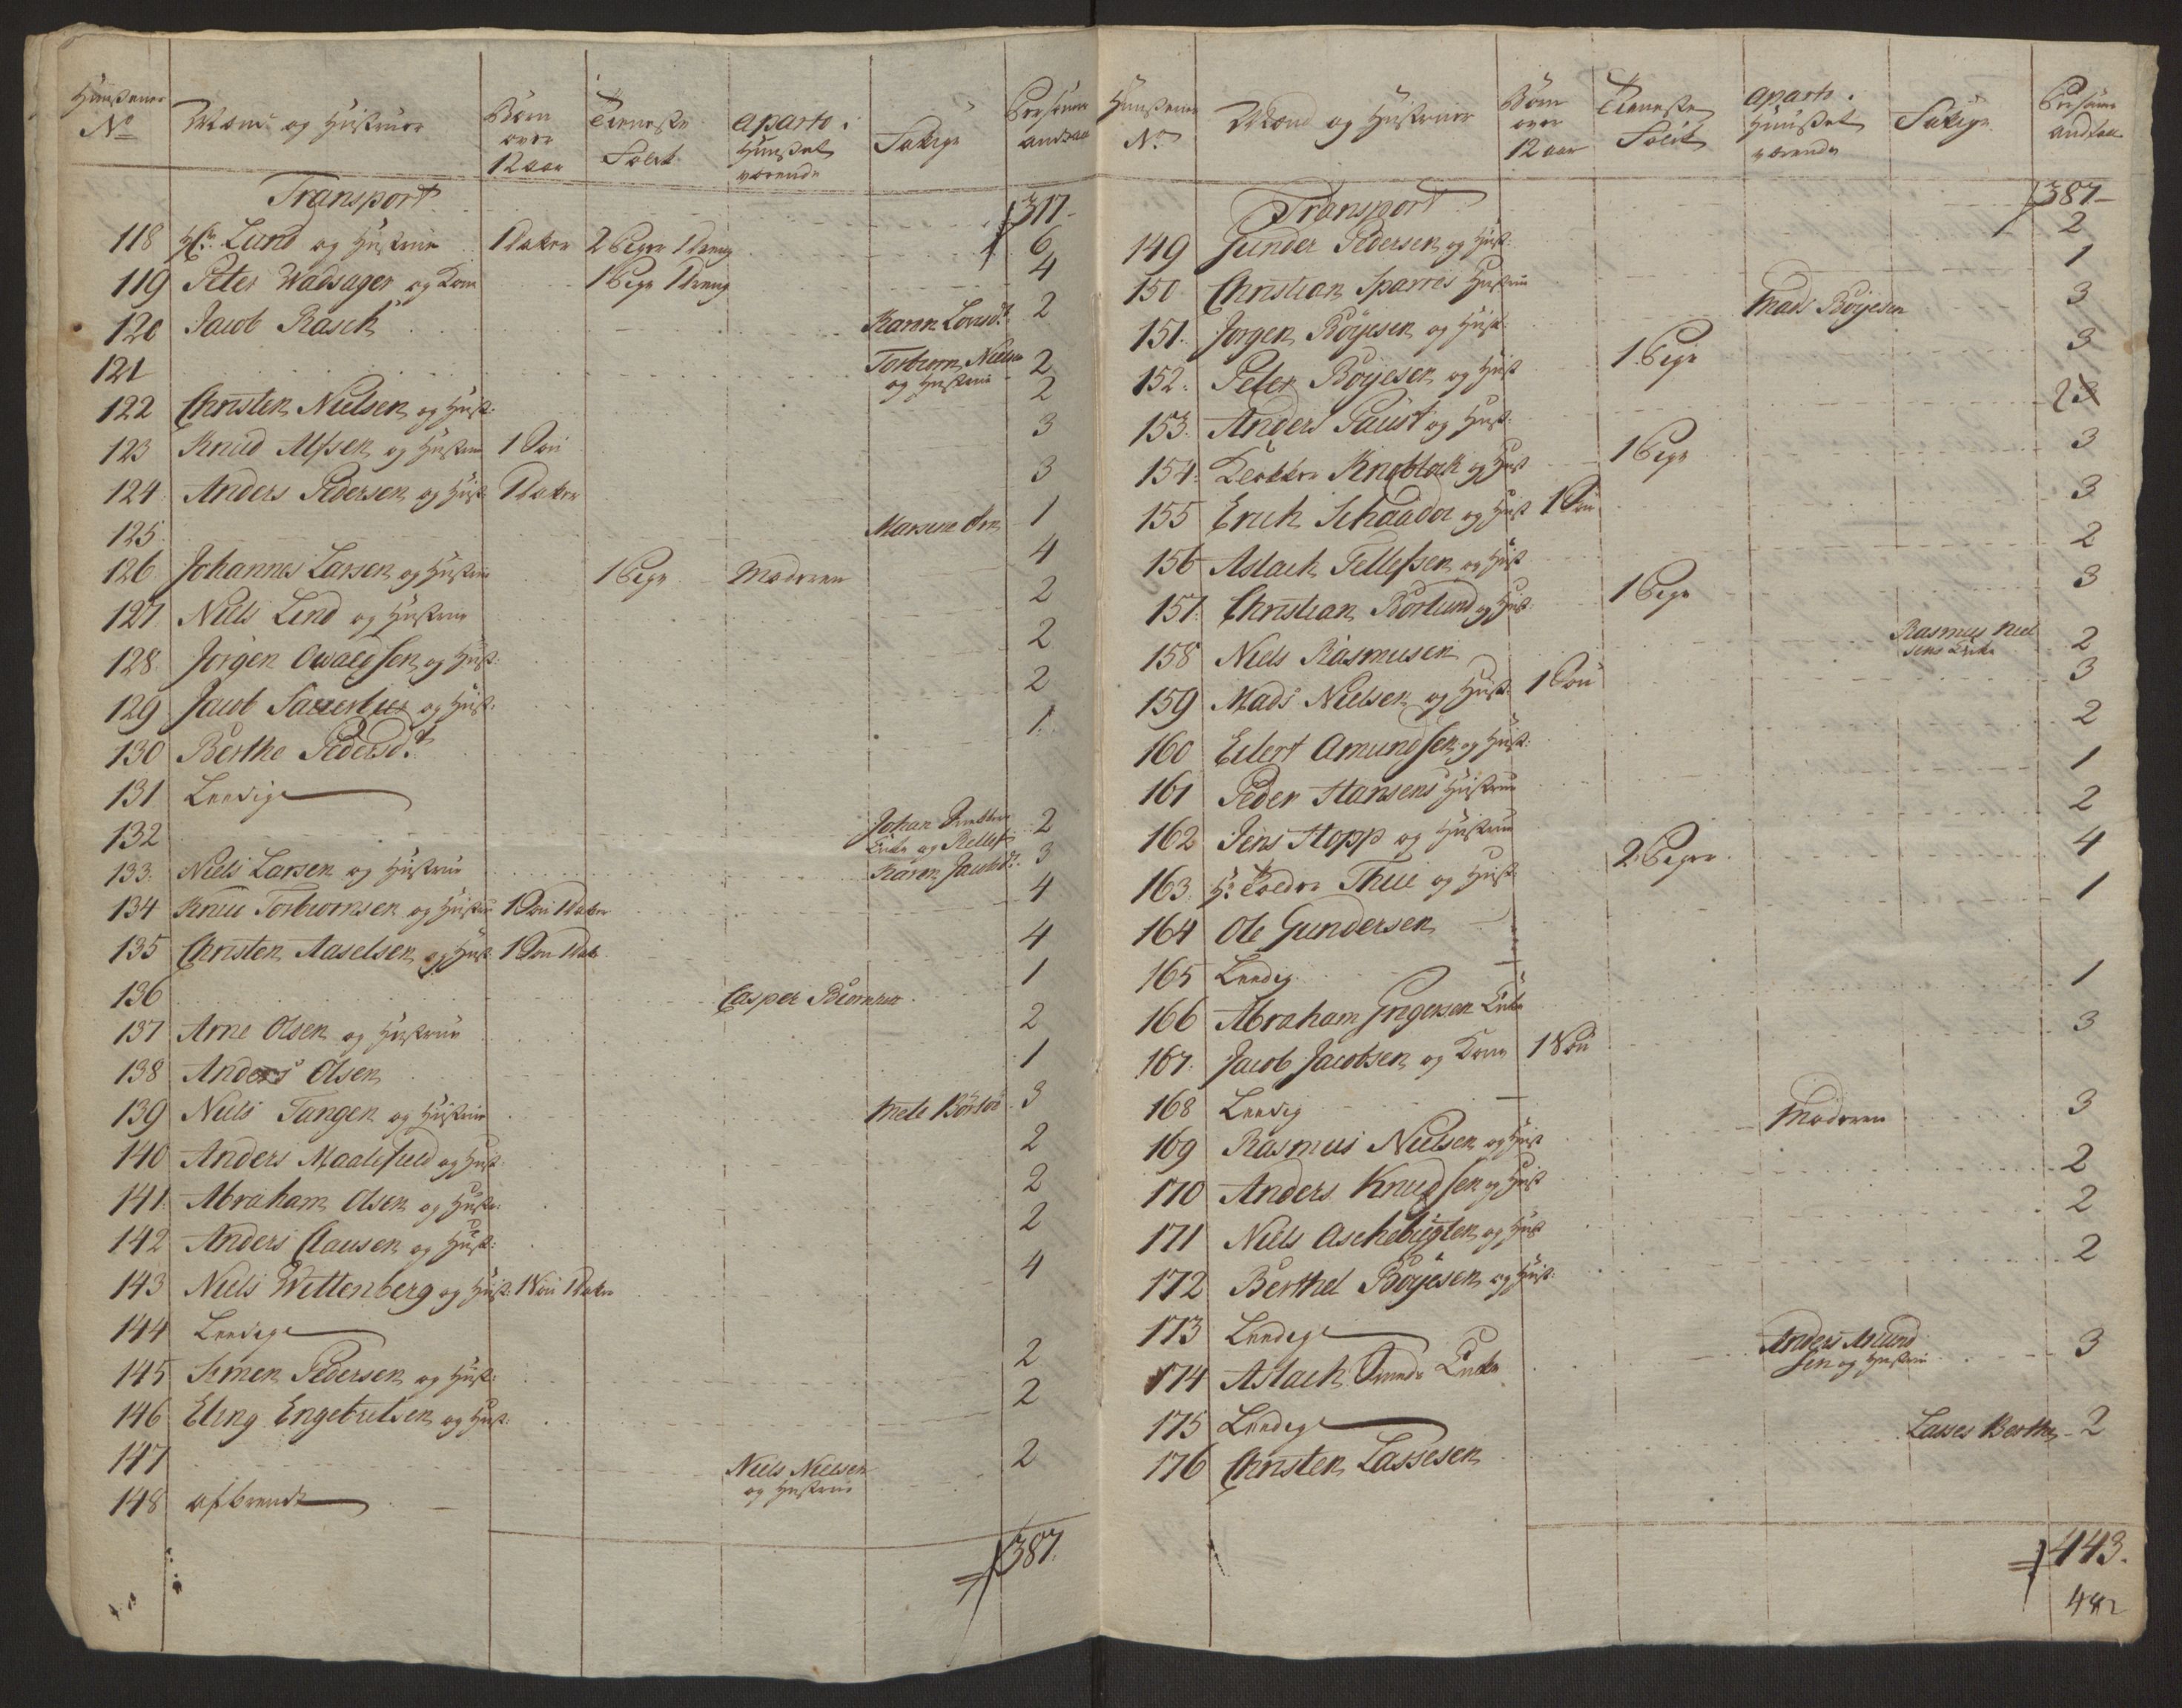 Huusenes No | Mænd og Hustruer | Børn over 12 aar | Tieneste Folck | aparte i Huuset værende | Fattige | Personers andtal
Transport 317
118 Hr. Lund og Hustrue 1 Dater 2 Piger 1 Dreng 6
119 Peter Wadsager og Kone 1 Pige 1 Dreng 4
120 Jacob Rasch Karen Larsdt. 2
121 Torbiørn Nielsen og Hustrue 2
122 Christen Nielsen og Hust: 2
123 Knud Alfsen og Hustrue 1 Søn 3
124 Anders Pedersen og Hust 1 Dater 3
125 1
126 Johannes Larsen og Hustrue 1 Pige Moderen 4
127 Niels Lind og Hustrue 2
128 Jørgen Owaldsen og Hust: 2
129 Jacob og Hust: 2
130 Berthe Pedersdt. 1
131 Leedig
132 Johan Enke og 2
133 Niels Larsen og Hustrue Karen Jacobsdt. 3
134 Knud Torbiørnsen og Hustrue 1 Søn 1 Dater 4
135 Christen Aaselsen og Hust 1 Søn 1 Dat: 4
136 Casper 1
137 Arne Olsen og Hustrue 2
138 Anders Olsen 1
139 Niels Tangen og Hustrue Mete 3
140 Anders Maalefield og Hust: 2
141 Abraham Olsen og Hust: 2
142 Anders Clausen og Hust: 2
143 Niels Wittenberg og Hust: 1 Søn 1 Dater 4
144 Leedig
145 Simen Pedersen og Hust: 2
146 Eling Engebretsen og Hust: 2
147 Niels Nielsen og Hustrue 2
148 afbrendt
387.
Huusenes No | Mænd og Hustruer | Børn over 12 aar | Tieneste Folck | aparte i Huuset værende | Fattige | Personers andtal
Transport 387
149 Gunder Pedersen og Hust: 2
150 Christian Sparres Hustrue 1
151 Jørgen Böyesen og Hust: Mads Böyesen 3
152 Peter Böyesen og Hust 1 Pige 3
153 Anders Faust og Hust: 2
154 Knoblack og Hust 1 Pige 3
155 Erich Schaadde og Hust 1 Søn 3
156 Aslack Tellefsen og Hust 2
157 Christian Norlund og Hust: 1 Pige 3
158 Niels Rasmusen Rasmus Nielsens Enke 2
159 Mads Nielsen og Hust: 1 Søn 3
160 Eilert Amundsen og Hust: 2
161 Peder Hansens Hustrue 1
162 Jens Hopp og Hustrue 2
163 Hr. Thue og Hust 2 Piger 4
164 Ole Gundersen 1
165 Leedig
166 Abraham Grigersen Enke 1
167 Jacob Jacobsen og Kone 1 Søn 3
168 Leedig
169 Rasmus Nielsen og Hust Moderen 3
170 Anders Knudsen og Hust 2
171 Niels Aschebugten og Hust 2
172 Berthel Böyesen og Hust: 2
173 Leedig
174 Aslach Enke Anders Aslundsen og Hustrue 3
175 Leedig
176 Christen Lassesen Lasses Berthe 2
443.